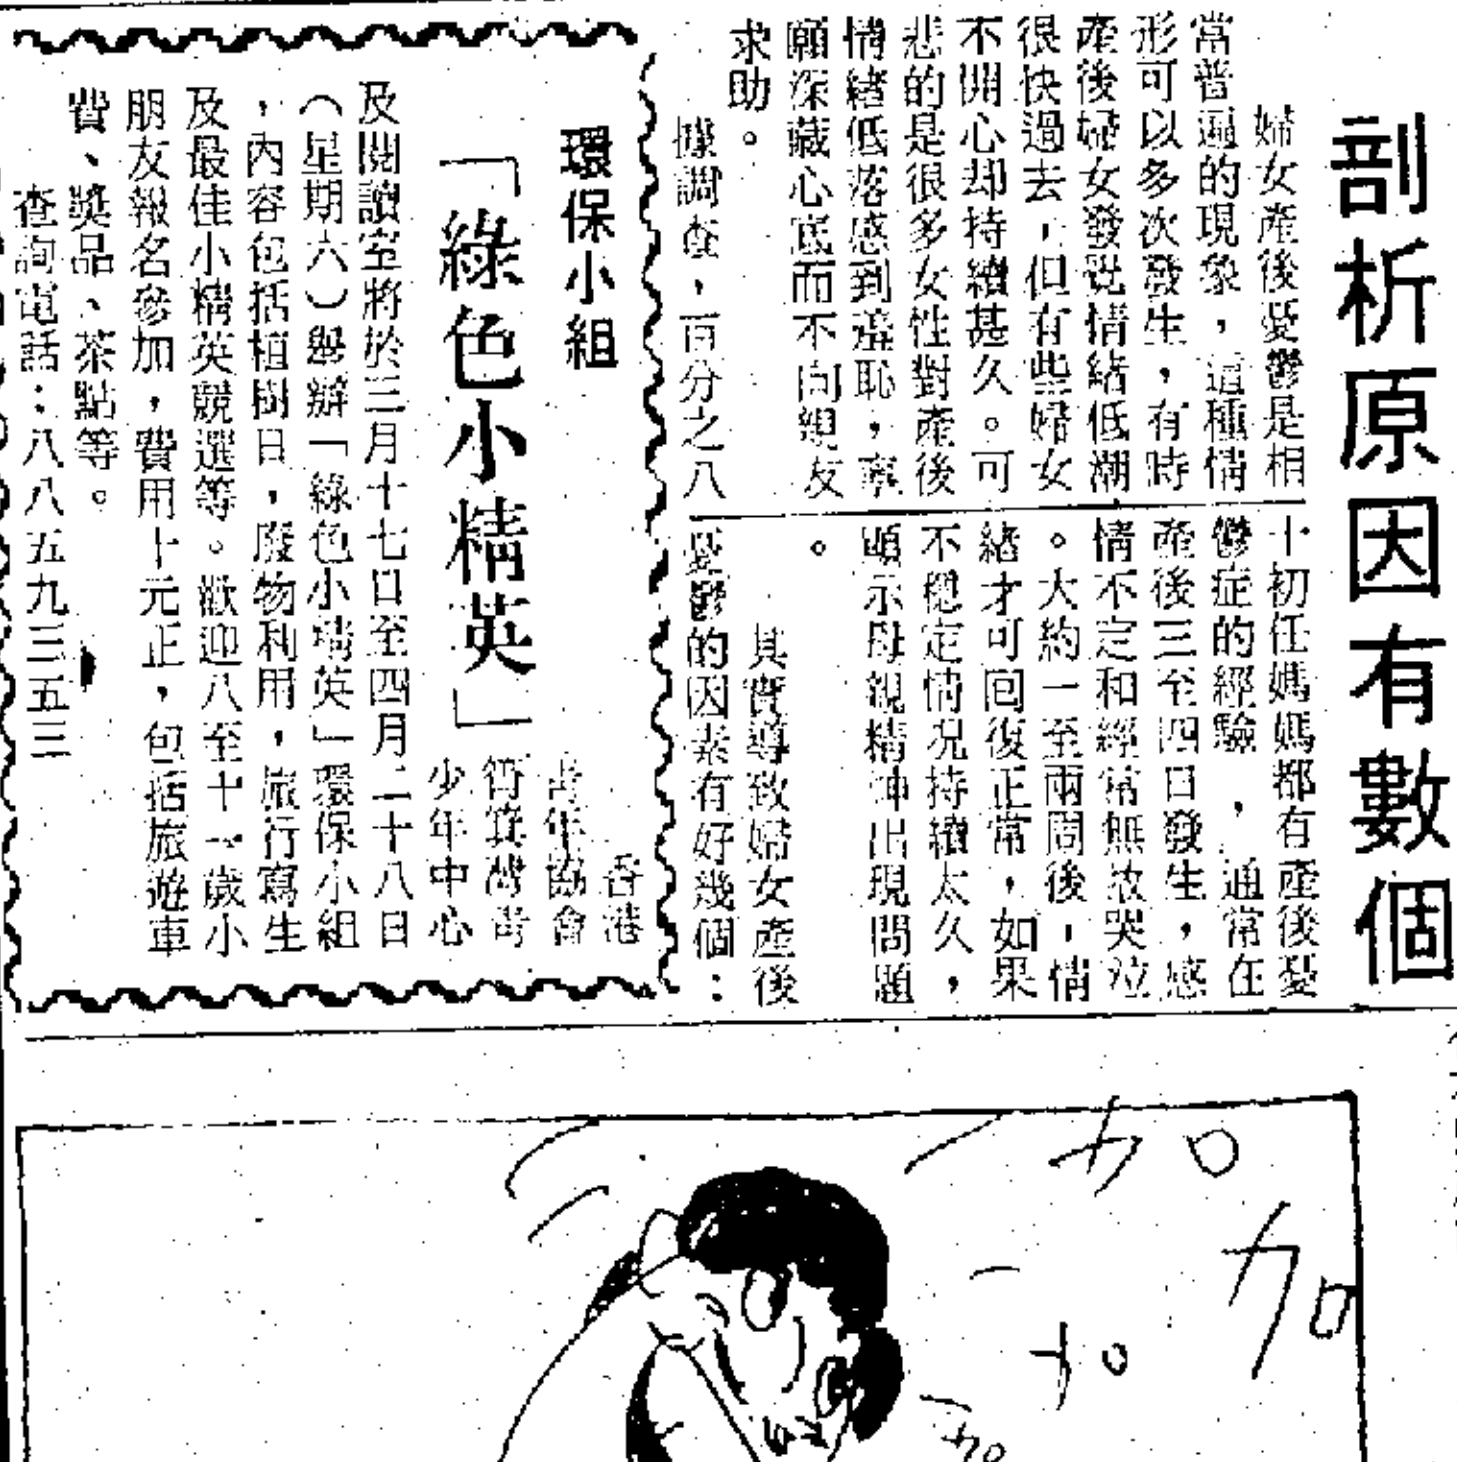 剖析原因有數個
婦女產後憂鬱是相
當普遍的現象，這種情
形可以多次發生，有時
產後婦女發覺情緒低潮
很快過去，但有些婦女
不開心却持續甚久。可
悲的是很多女性對產後
情緒低落感到羞恥，寧
願深藏心底而不向親友
求助。
據調查，百分之八
十初任媽媽都有產後憂
鬱症的經驗，通常在
產後三至四日發生，感
情不定和經常無故哭泣
。大約一至兩周後，情
緒才可回復正常，如果
不穩定情況持續太久，
顯示母親精神出現問題
。
其實導致婦女產後
憂鬱的因素有好幾個：
環保小組
「綠色小精英」
香港
青年協會
筲箕灣青
少年中心
及閱讀室將於三月十七日至四月二十八日
（星期六）舉辦「綠色小精英」環保小組
，內容包括植樹日，廢物利用，旅行寫生
及最佳小精英競選等。歡迎八至十一歲小
朋友報名參加，費用十元正，包括旅遊車
費、獎品、茶點等。
查詢電話：八八五九三五三
加
加
加
加